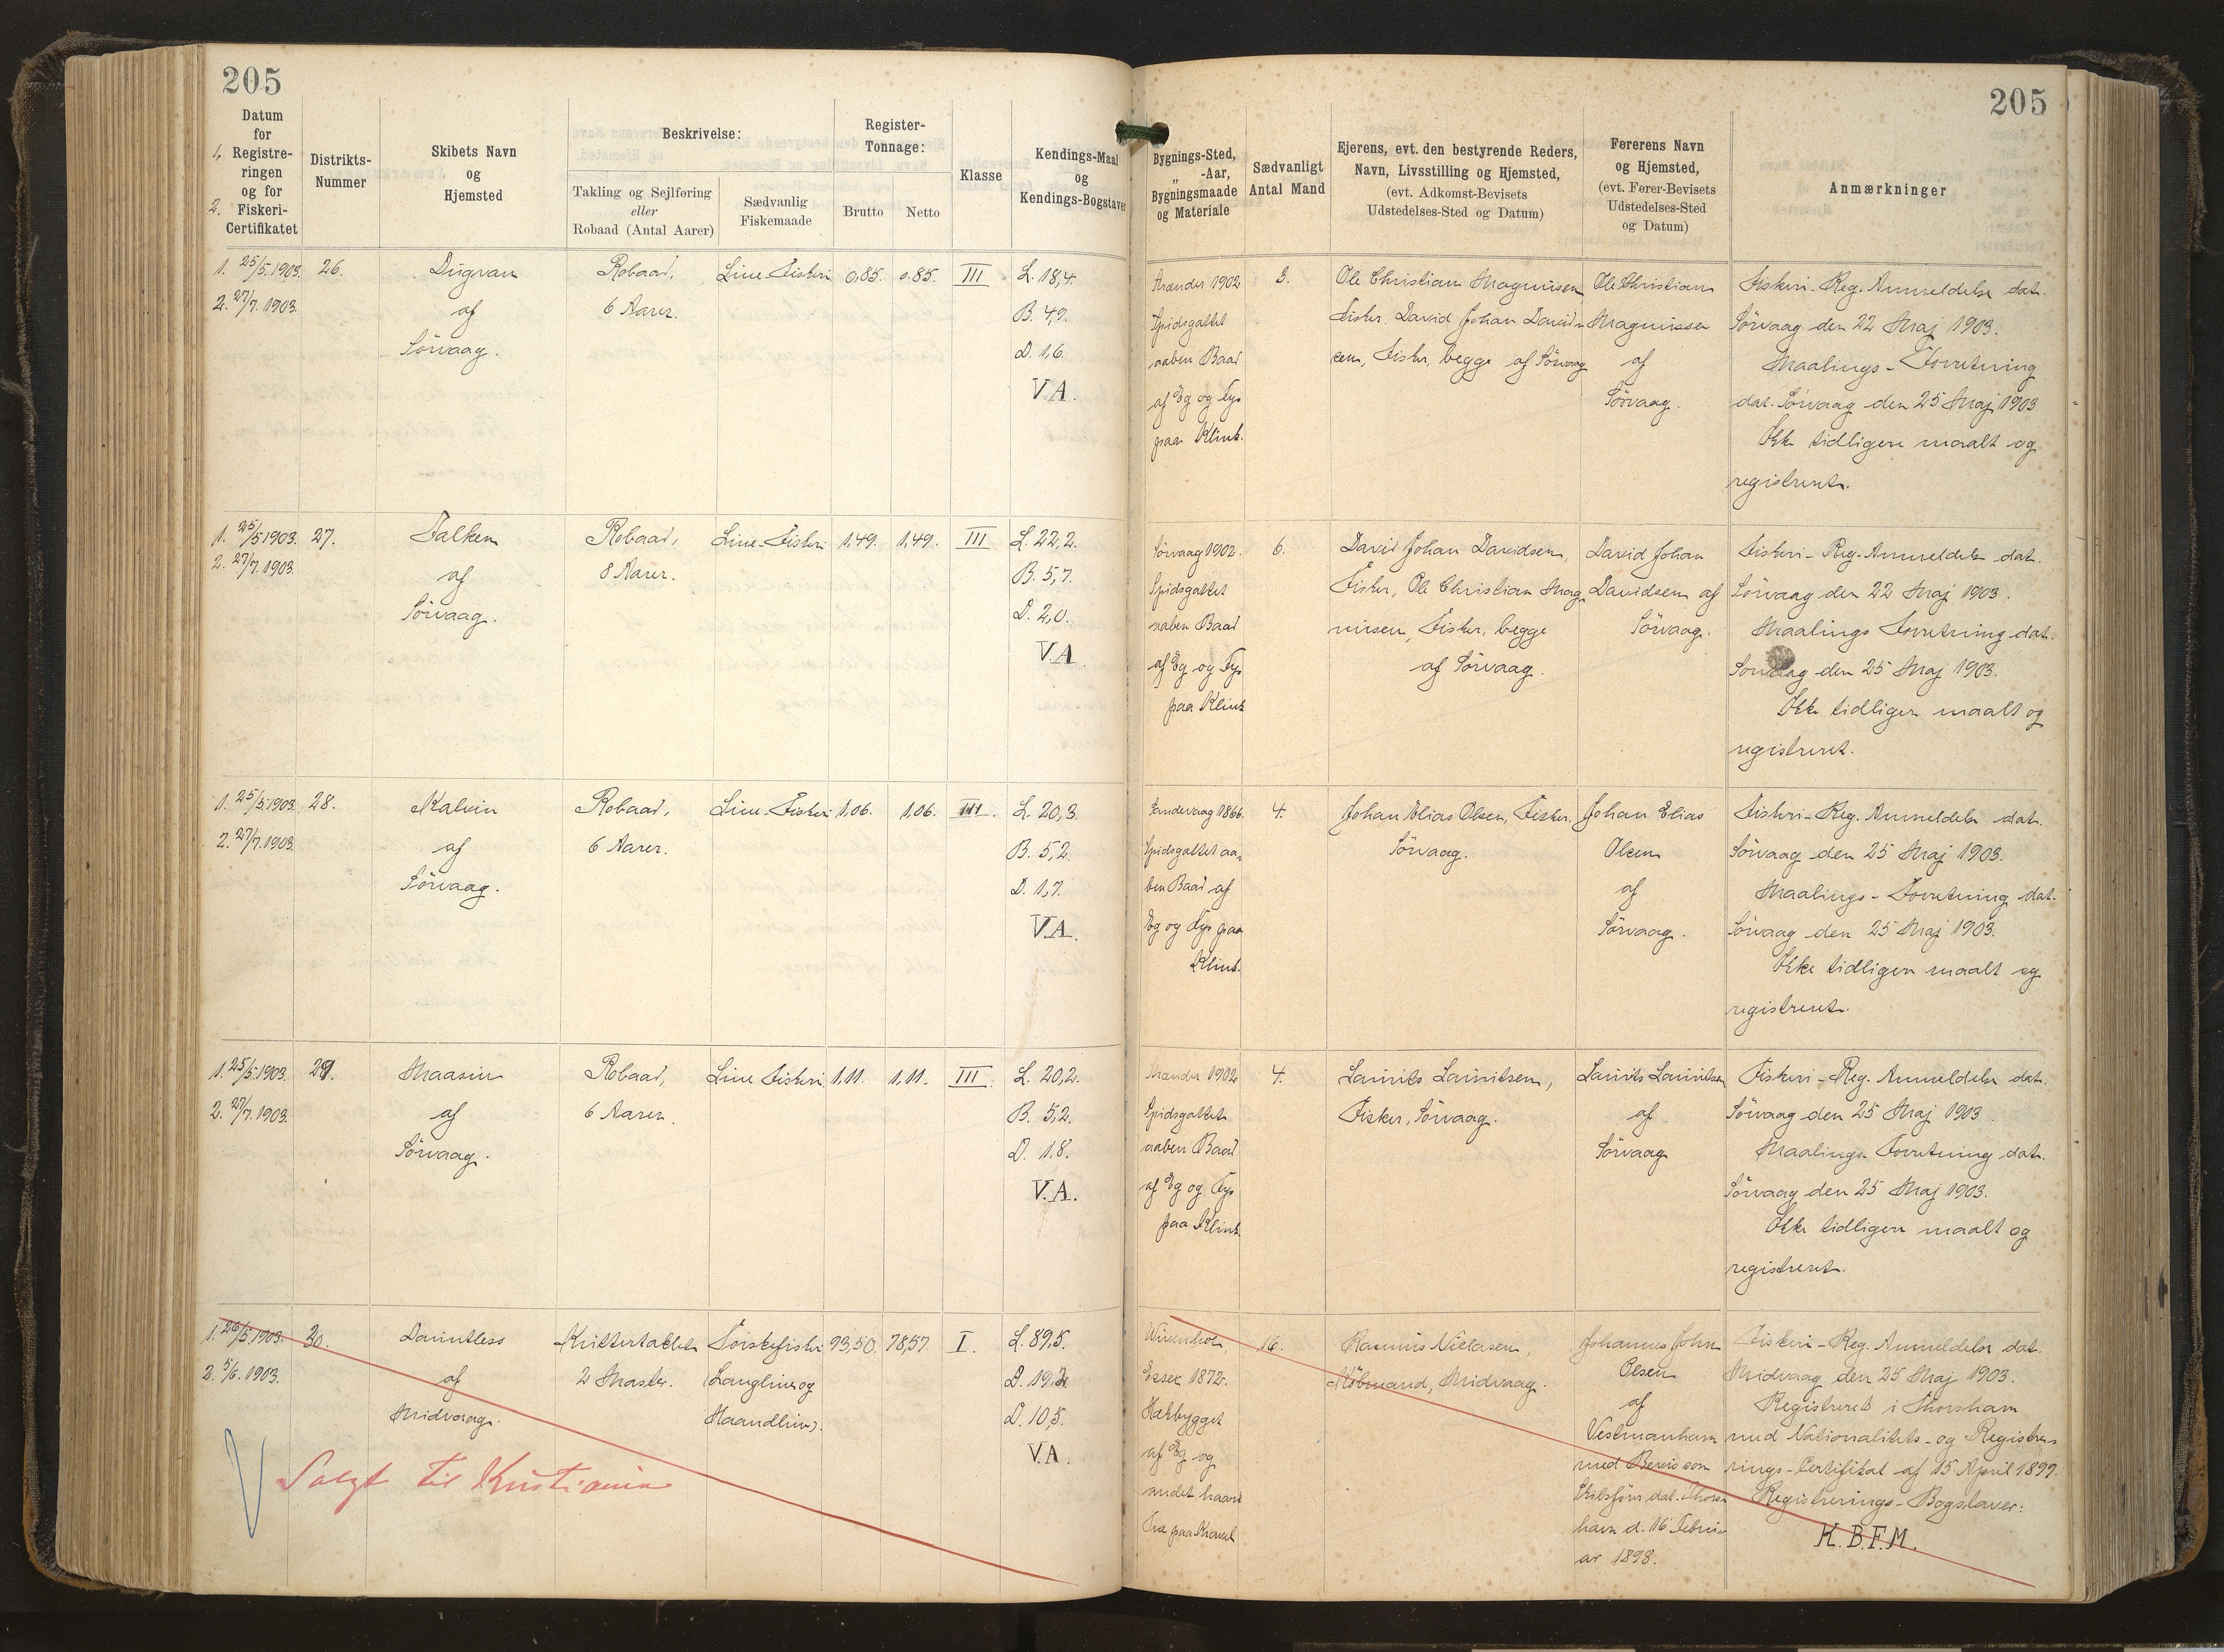 205
205
Datum
for
1. Registre-
ringen
og for
2. Fiskeri-
Certifikatet
Distrikts-
Nummer
Skibets Navn
og
Hjemsted
Beskrivelse:
Takling og Sejlføring
eller
Robaad (Antal Aarer)
Sædvanlig
Fiskemaade
Register-
Tonnage:
Brutto
Netto
Klasse
Kendings-Maal
og
Kendings-Bogstaver
Bygnings-Sted,
„ -Aar,
Bygningsmaade
og Materiale
Sædvanligt
Antal Mand
Ejerens, evt. den bestyrende Reders,
Navn, Livsstilling og Hjemsted,
(evt. Adkomst-Bevisets
Udstedelses-Sted og Datum)
Førerens Navn
og Hjemsted,
(evt. Fører-Bevisets
Udstedelses-Sted
og Datum)
Anmærkninger
1. 25/5.1903.
2. 27/7.1903.
26.
Dugvan
af
Sörvaag.
Robaad,
6 Aarer.
Line-Fiskeri
0,85.
0,85.
III
L. 18,4.
B. 4,9.
D. 1,6.
V.A.
Strander 1902
Spidsgattet
aaben Baad
af Eg og Fyr
paa Klink.
3.
Ole Christian Magnussen
Fisker, David Johan David-
sen, Fisker, begge af Sörvaag
Ole Christian
Magnussen
af
Sörvaag.
Fiskeri-Reg. Anmeldelse dat.
Sörvaag den 22 Maj 1903.
Maalings-Forretning
dat. Sörvaag den 25 Maj 1903
Ikke tidligere maalt og
registreret.
1. 25/5 1903.
2. 27/7.1903.
27.
Falken
af
Sörvaag.
Robaad,
8 Aarer.
Line-Fiskeri
1,49.
1,49.
III
L. 22,2.
B. 5,7.
D. 2,0.
V.A.
Sörvaag 1902.
Spidsgattet
aaben Baad
af Eg og Fyr
paa Klink
6.
David Johan Davidsen,
Fisker, Ole Christian Mag-
nusen, Fisker, begge
af Sörvaag.
David Johan
Davidsen af
Sörvaag.
Fiskeri-Reg. Anmeldelse dat.
Sörvaag den 22 Maj 1903.
Maalings Forretning dat.
Sörvaag den 25 Maj 1903.
Ikke tidligere maalt og
registreret.
1. 25/5.1903
2. 27/7.1903.
28.
Kalvin
af
Sörvaag.
Robaad,
6 Aarer.
Line-Fiskeri
1,06.
1,06.
III.
L. 20,3.
B. 5,2.
D. 1,7.
V.A.
Sandevaag 1866.
Spidsgattet aa-
ben Baad af
Eg og Fyr paa
Klink.
4.
Johan Elias Olsen, Fisker,
Sörvaag.
Johan Elias
Olsen
af
Sörvaag.
Fiskeri-Reg. Anmeldelse dat.
Sörvaag den 25 Maj 1903.
Maalings-Forretning dat.
Sörvaag den 25 Maj 1903.
Ikke tidligere maalt og
registreret.
1. 25/5.1903.
2. 27/7.1903.
29.
Maasin
af
Sörvaag.
Robaad,
6 Aarer.
Line Fiskeri
1,11.
1,11.
III.
L. 20,2.
B. 5,2.
D. 1,8.
V.A.
Strander 1902
Spidsgattet
aaben Baad
af Eg og Fyr
paa Klink.
4.
Laurits Lauritsen,
Fisker, Sörvaag.
Laurits Lauritsen
af
Sörvaag
Fiskeri-Reg. Anmeldelse dat.
Sörvaag den 25 Maj 1903.
Maalings Forretning dat.
Sörvaag den 25 Maj 1903.
Ikke tidligere maalt og
registreret.
1. 26/5.1903.
2. 5/6.1903.
30.
Dauntless
af
Midvaag.
Kuttertaklet
2 Master.
Torskefiskeri
(Langline og
Haandline).
93,50.
78,57
I.
L. 89,5.
B. 19,2.
D. 10,5.
V.A.
Wivenhoe,
Essex 1872.
Hækbygget
af Eg og
andet haard
Træ paa Kravel
16.
Rasmus Nielsen,
Köbmand, Midvaag.
Johannes John
Olsen
af
Vestmanhavn
med Bevis som
Skibsfører dat. Thors-
havn d. 16 Febru-
ar 1898.
Fiskeri-Reg. Anmeldelse dat.
Midvaag den 25 Maj 1903.
Registreret i Thorshavn
med Nationalitets- og Registre-
rings-Certifikat af 15 April 1899.
Registrerings-Bogstaver:
K.B.F.M.
V Solgt til Kristiania